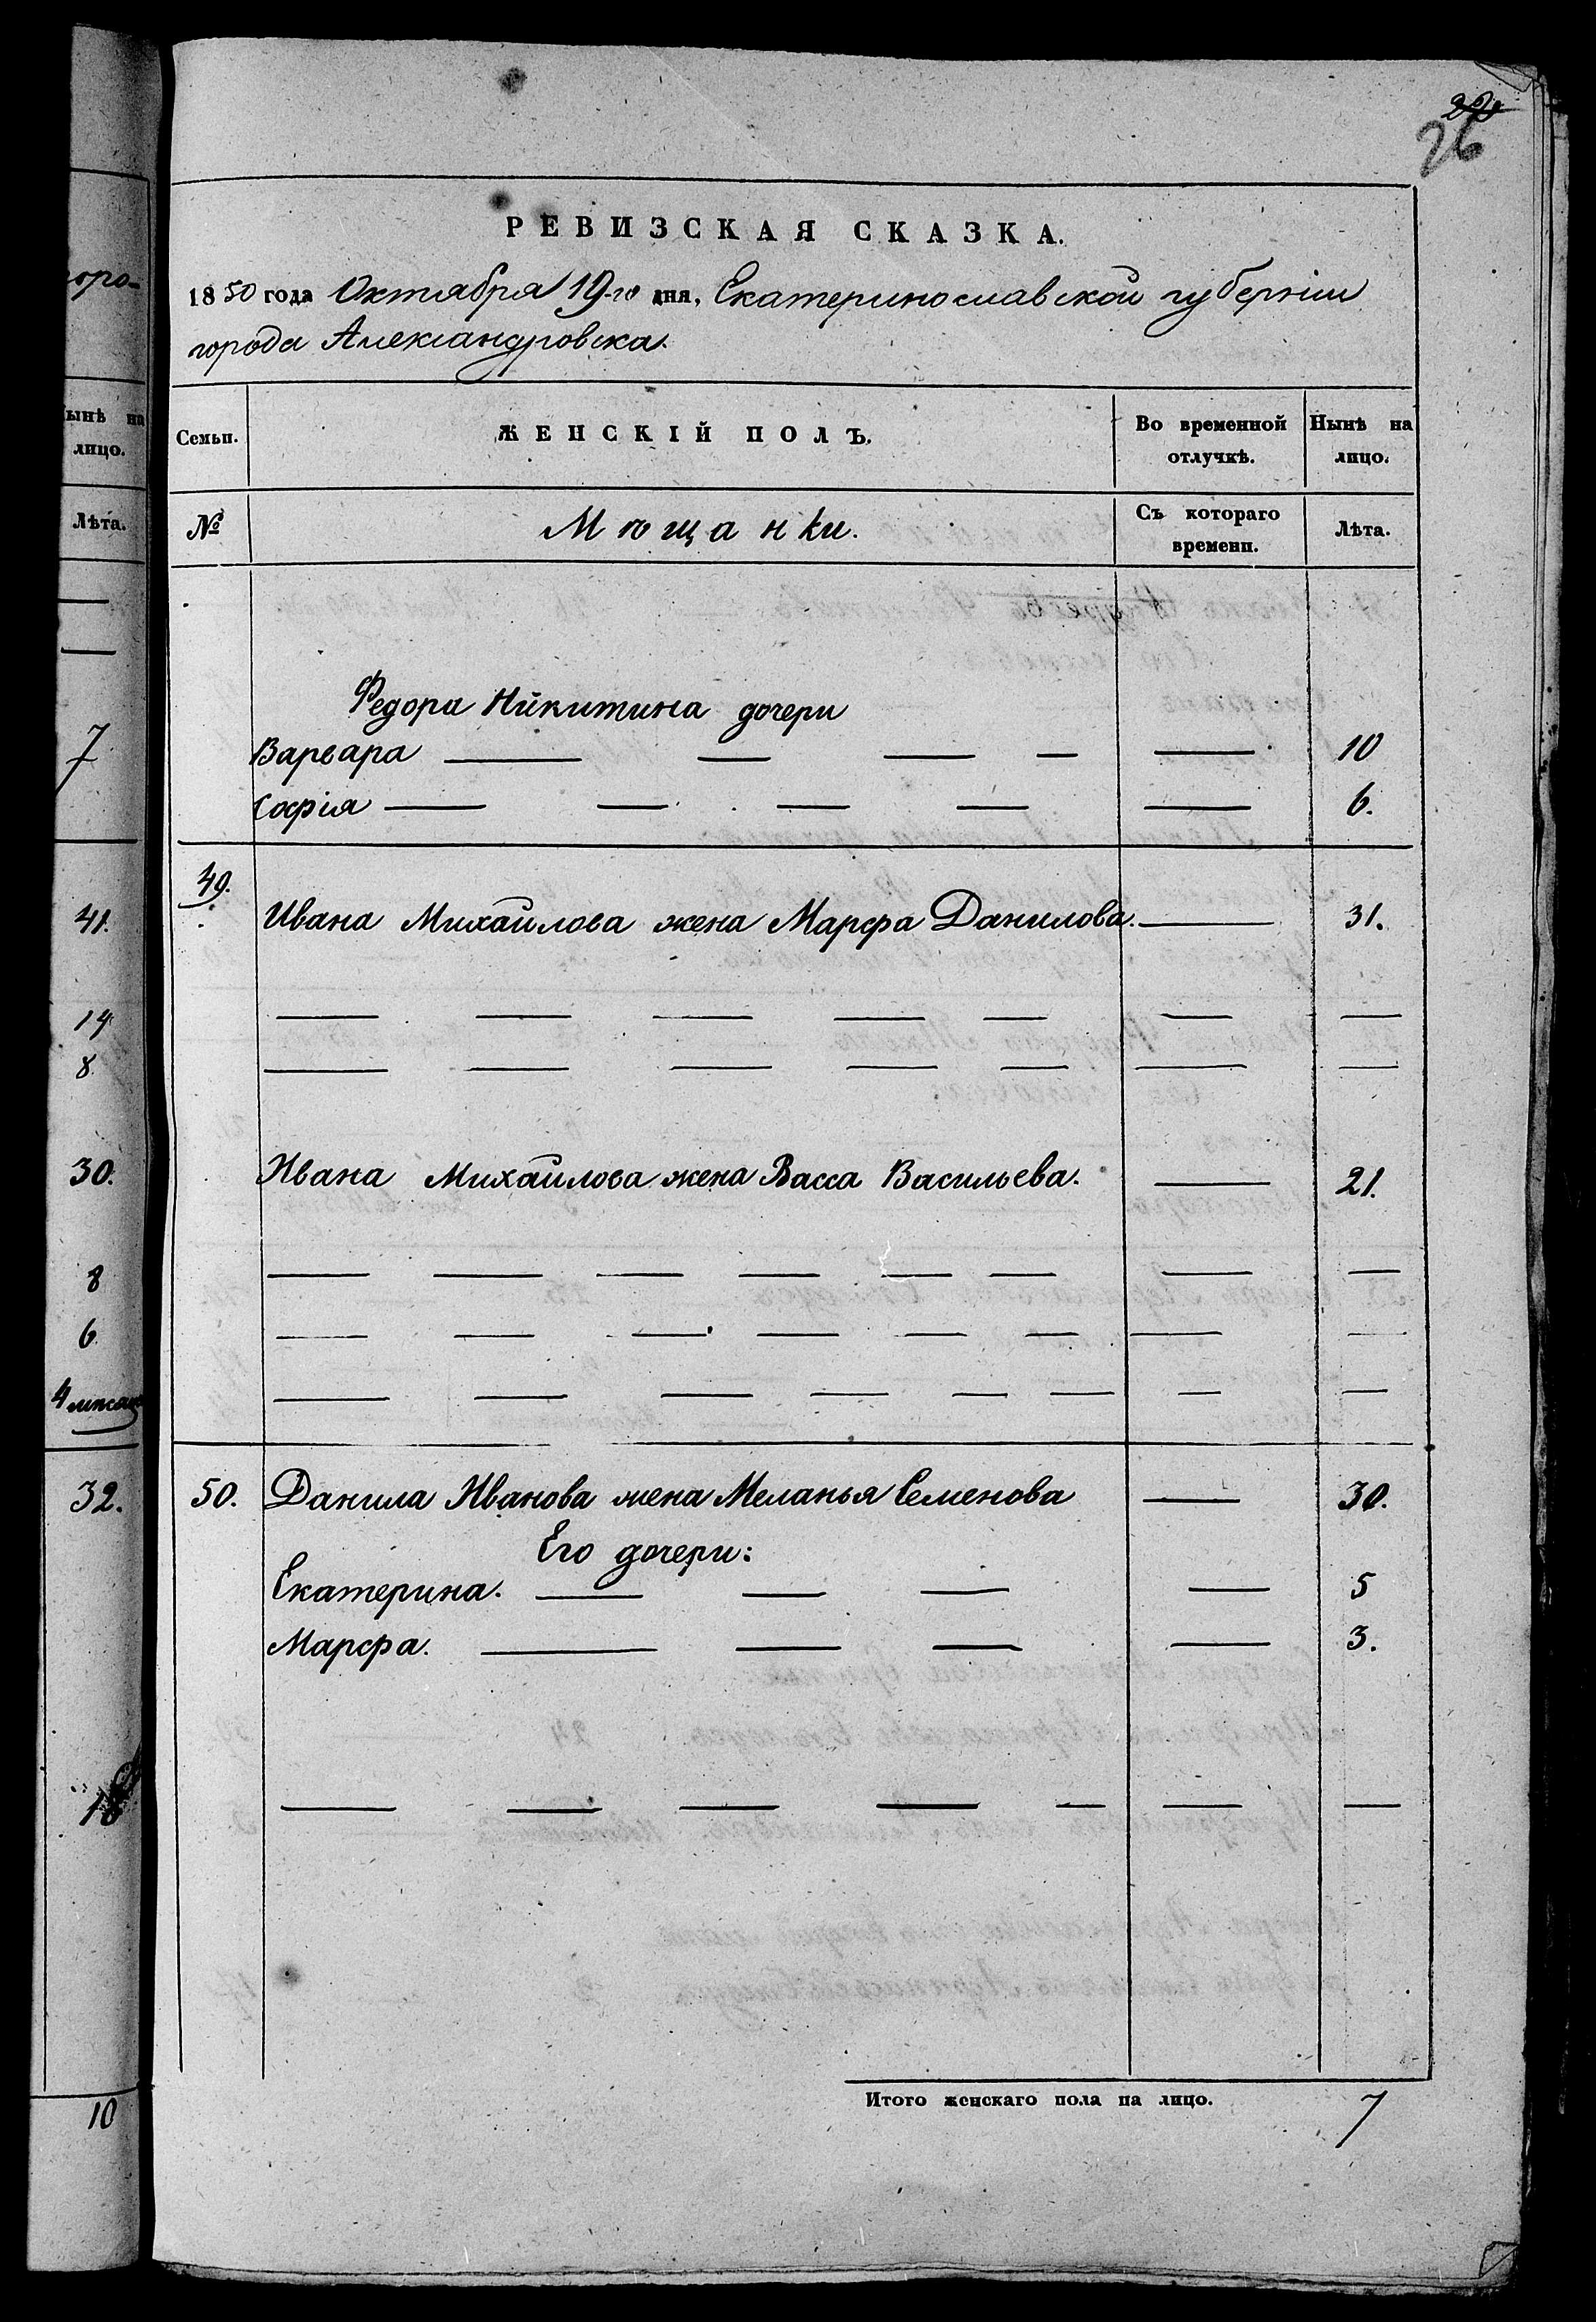 26
РЕВИЗСКАЯ СКАЗКА.
1850 года Октября 19-го дня, Екатеринославской губерніи
города Александровска.
Семьи. ЖЕНСКІЙ ПОЛЪ. Во временной отлучкѣ. Нынѣ на лицо.
№ Мѣщанки. Съ котораго времени. Лѣта.
Федора Никитина дочери
Варвара — — — — — 10
Софія — — — — — 6.
49.
Ивана Михайлова жена Марфа Данилова. — 31.
— — — — — — —
— — — — — — —
Ивана Михайлова жена Васса Васильева. — 21.
— — — — — — — —
— — — — — — — —
— — — — — — —
50. Данила Иванова жена Меланья Семенова — 30.
Его дочери:
Екатерина. — — — — 5
Марфа. — — — — 3.
— — — — — — —
Итого женскаго пола на лицо. 7
оро-
Нынѣ на
лицо.
Лѣта.
—
—
7
41.
14
8.
30.
8
6
4 мѣсяц
32.
10